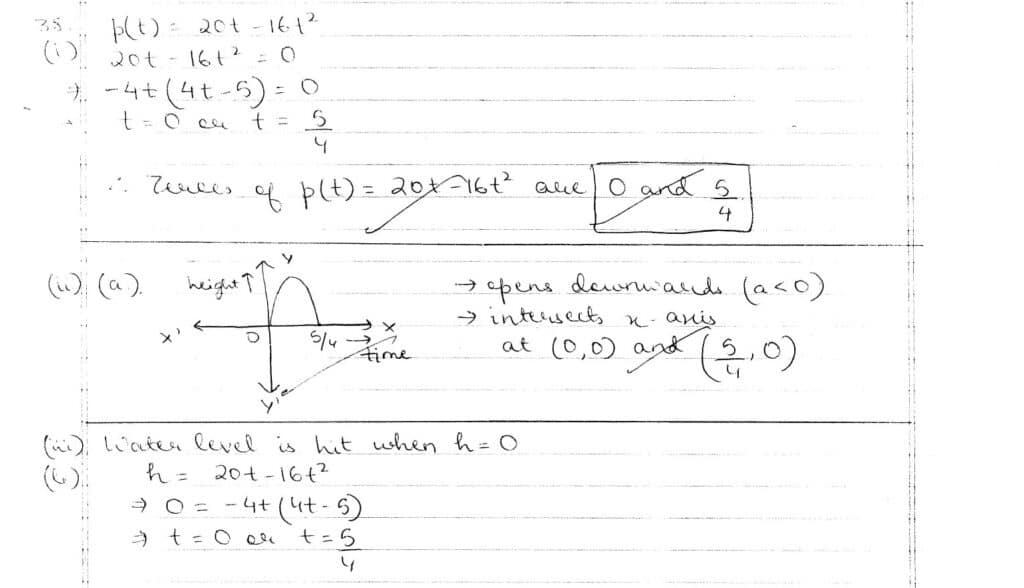 38. p(t) = 20t - 16t²
(i) 20t - 16t² = 0
⇒ -4t(4t-5) = 0
t = 0 or t = 5/4
∴ Zeroes of p(t) = 20t - 16t² are 0 and 5/4
(ii) (a). height ↑ Y → opens downwards (a<0)
X' O 5/4 → X → intersects x-axis
time at (0,0) and (5/4, 0)
Y'
(iii) Water level is hit when h = 0
(b) h = 20t - 16t²
⇒ 0 = -4t(4t-5)
⇒ t = 0 or t = 5/4